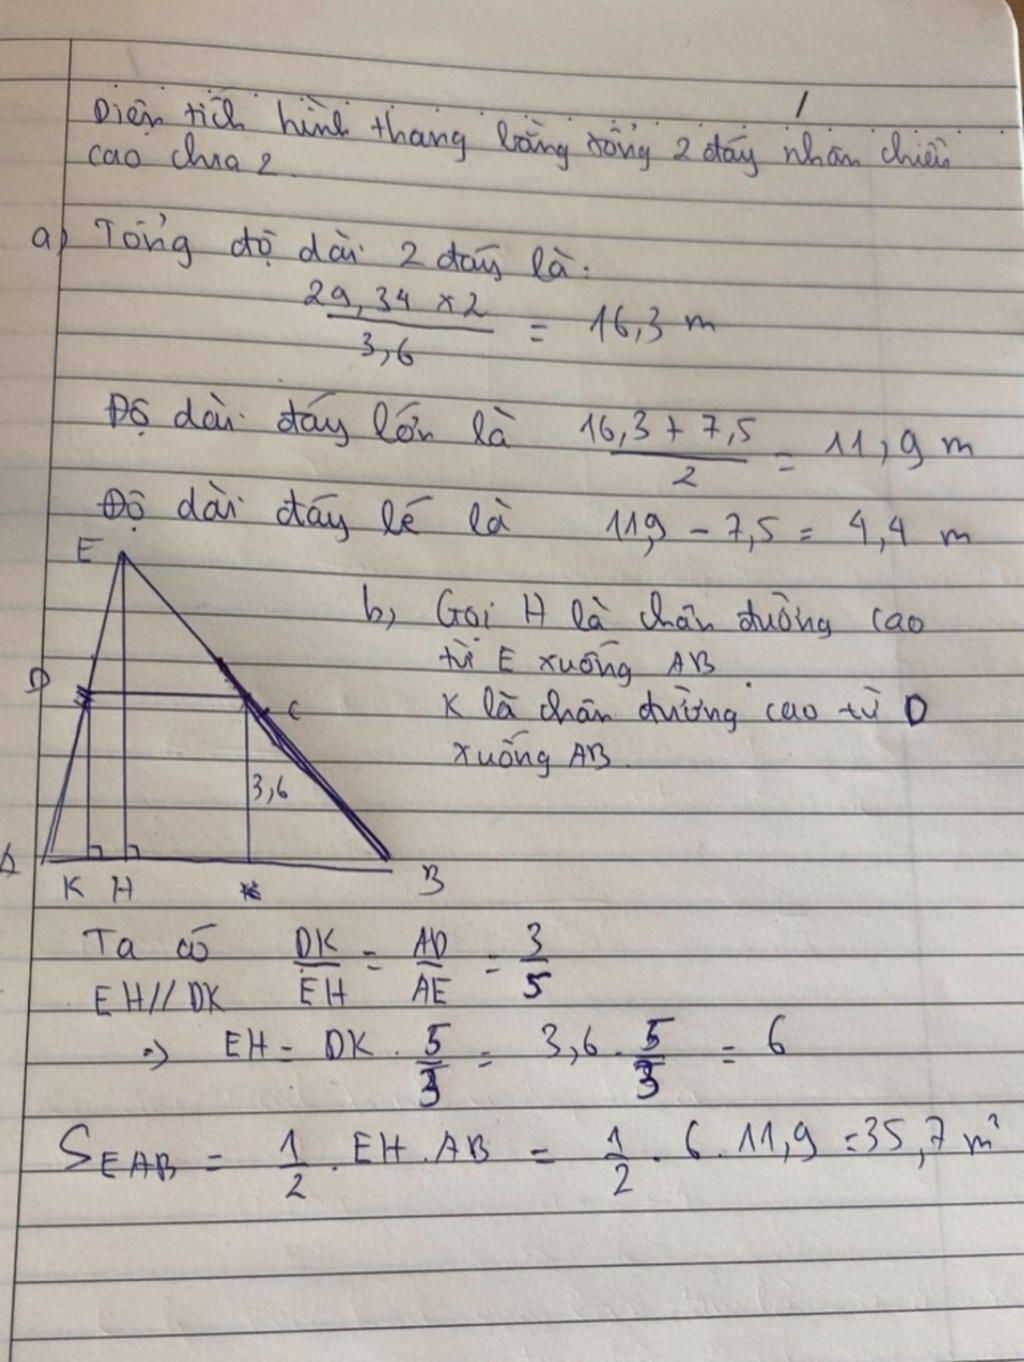 Diện tích hình thang bằng tổng 2 đáy nhân chiều
cao chia 2.
a) Tổng độ dài 2 đáy là:
29,34 x 2 / 3,6 = 16,3 m
Độ dài đáy lớn là 16,3 + 7,5 / 2 = 11,9 m
Độ dài đáy bé là 11,9 - 7,5 = 4,4 m
E
b, Gọi H là chân đường cao
từ E xuống AB
D
K là chân đường cao từ D
C
xuống AB.
3,6
A
K H
B
Ta có DK/EH = AD/AE = 3/5
EH//DK
=> EH = DK . 5/3 = 3,6 . 5/3 = 6
S EAB = 1/2 . EH . AB = 1/2 . 6 . 11,9 = 35,7 m²